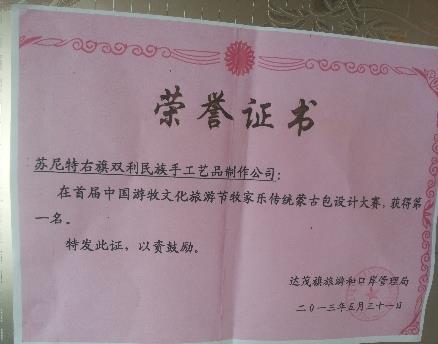 荣誉证书
苏尼特右旗双利民族手工艺品制作公司:
在首届中国游牧文化旅游节牧家乐传统蒙古包设计大赛,获得第
一名。
特发此证,以资鼓励。
达茂旗旅游和口岸管理局
二〇一三年五月三十一日